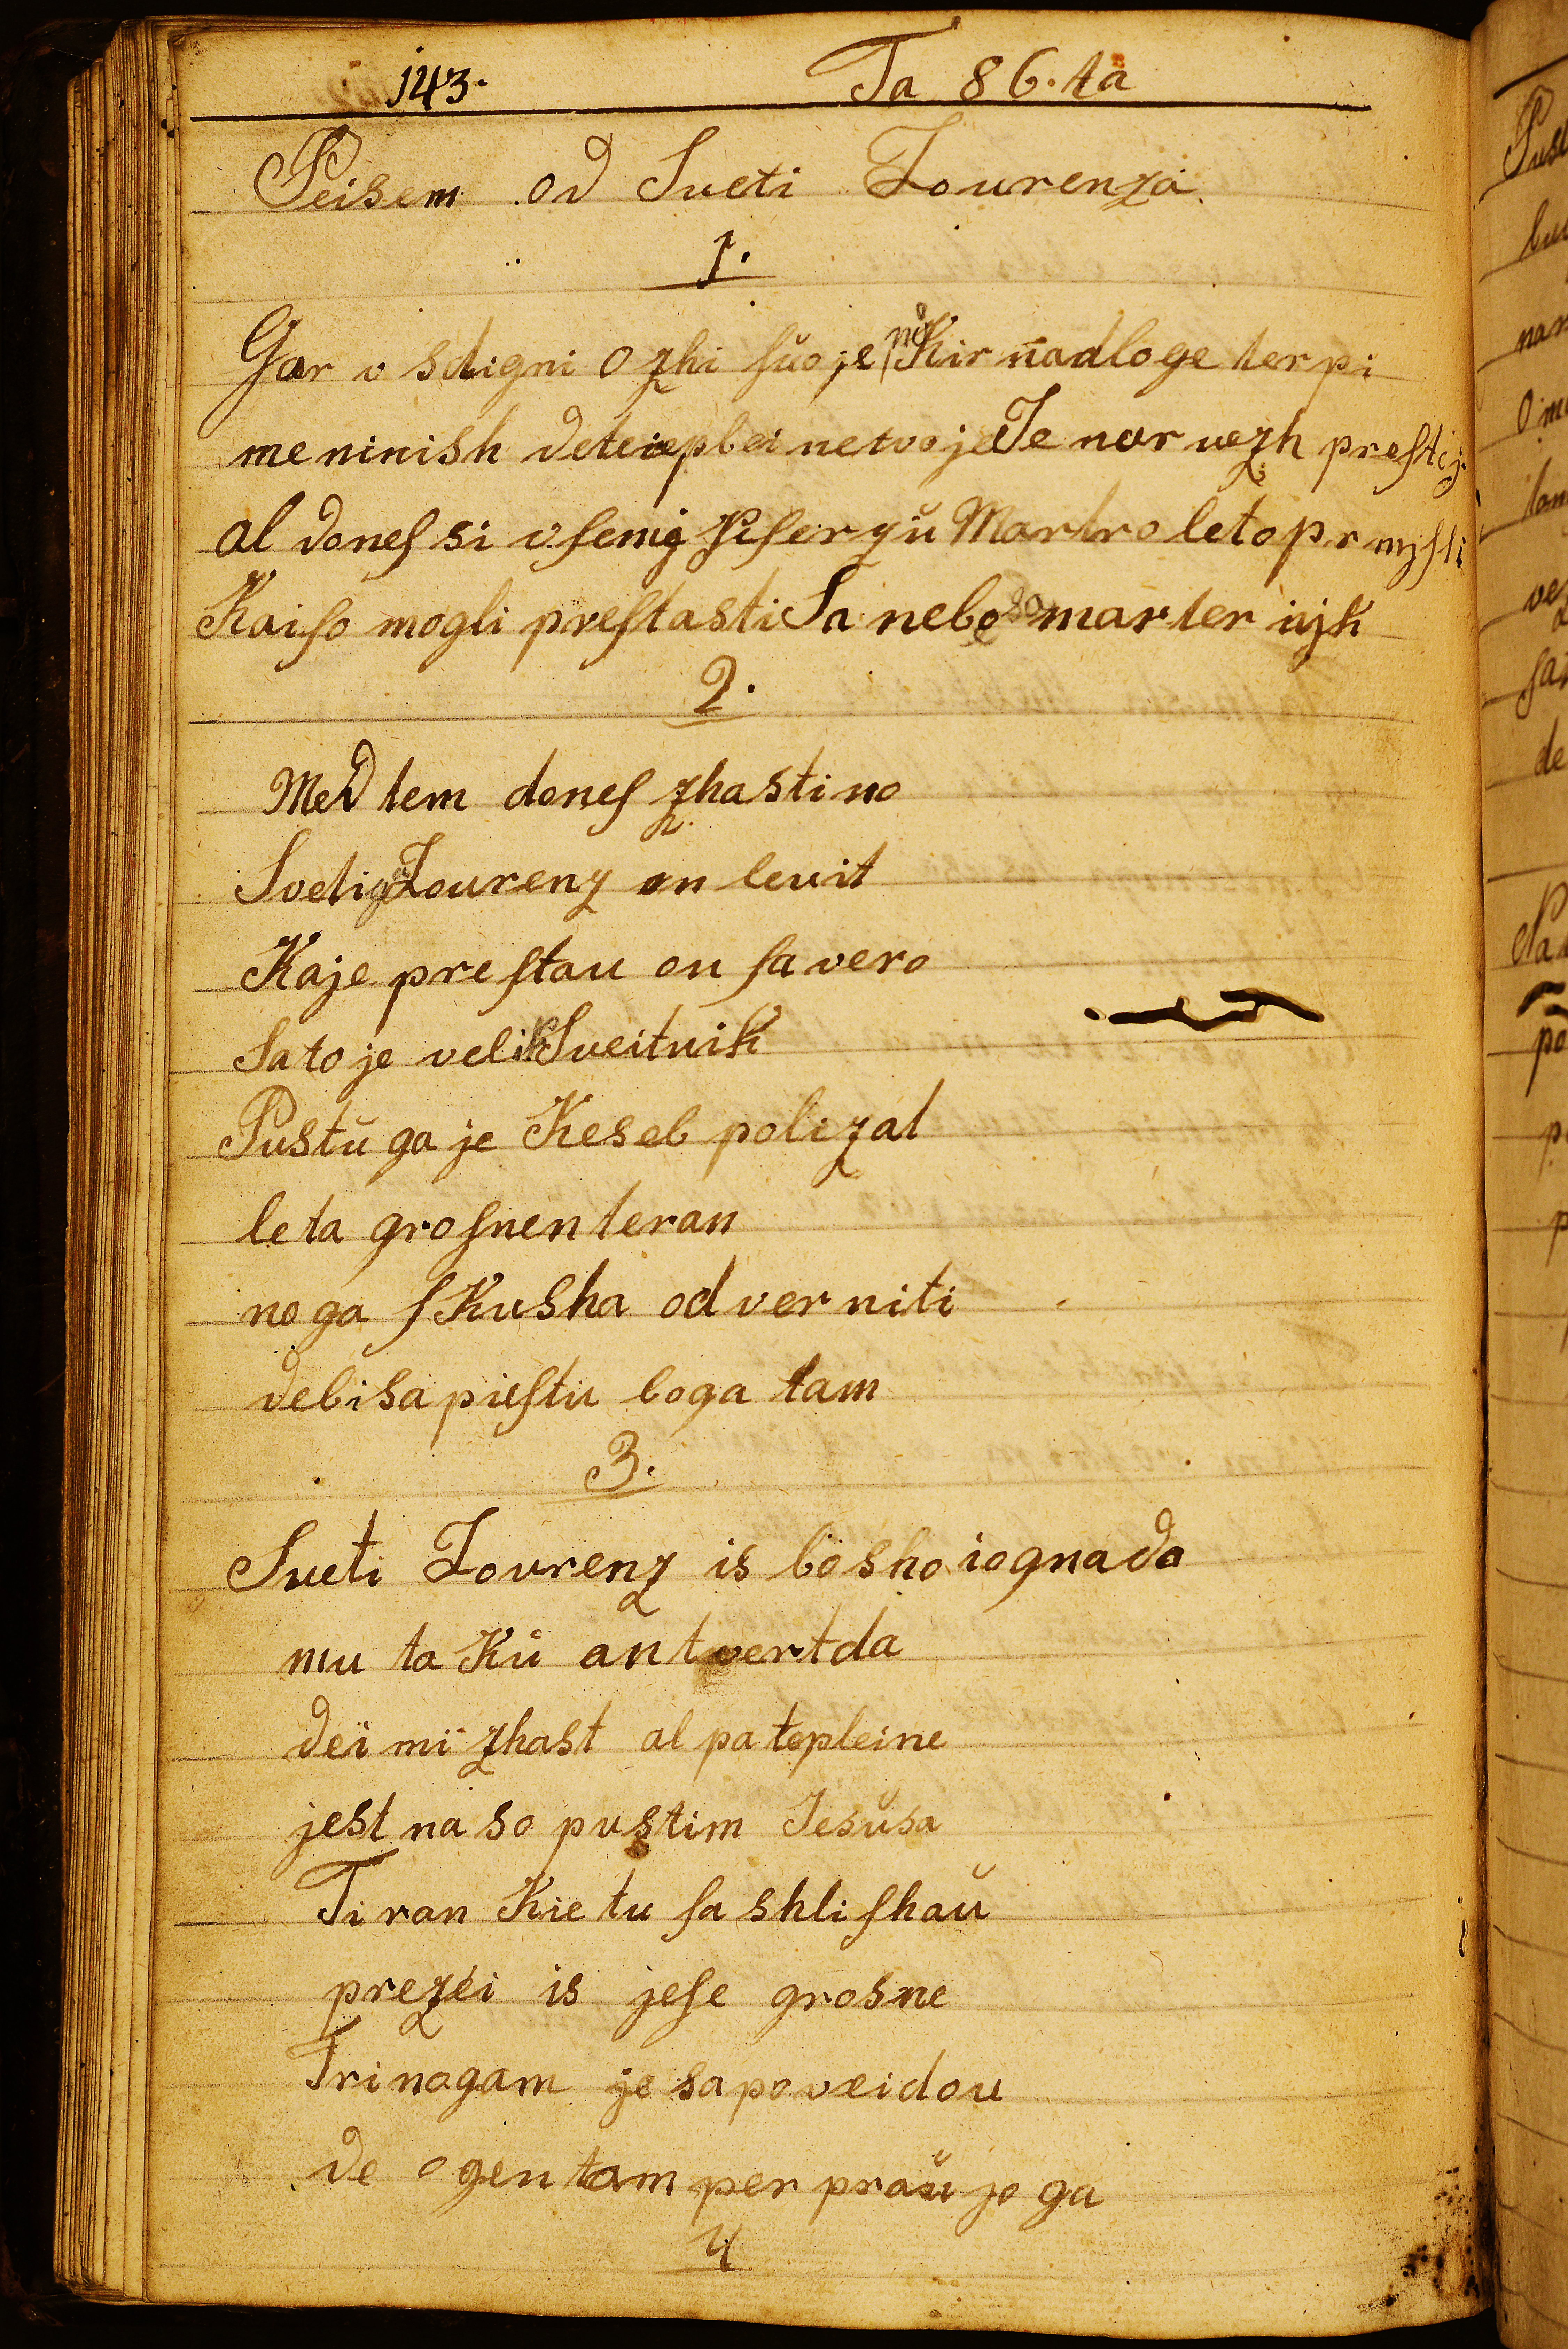 143. Ta 86.ta
Peisem od Sveti Lourenza.
1.
Gor v sdigni o zhi ſvoje no Kir nadloge terpi
me ninish de teiepbei ne tvoje Te nar vezh preſtij
al doneſ si vſemig Kiſerzu Martro leto pr myſli
Kaiſo mogli preſtasti Sa nebo so marter nijh
2.
Med tem doneſ zhastimo
Svetig Lourenz on levit
Kaje preſtau on ſa vero
Sato je velik Sveitnik
Pustŭ ga je Keseb polizal
leta groſnen teran
no ga ſKusha od ver niti
debi sapieſtu boga tam
3.
Sveti Lovrenz is bosho iognado
mu ta Kŭ antvert da
dei mi zhast al pa tepleine
jest na so pustim Jesŭsa
Tiran Kie tu ſa shliſhaŭ
prezei is jeſe grosne
Trinogam je sapoveidou
de ogen tam per praŭjo ga
4